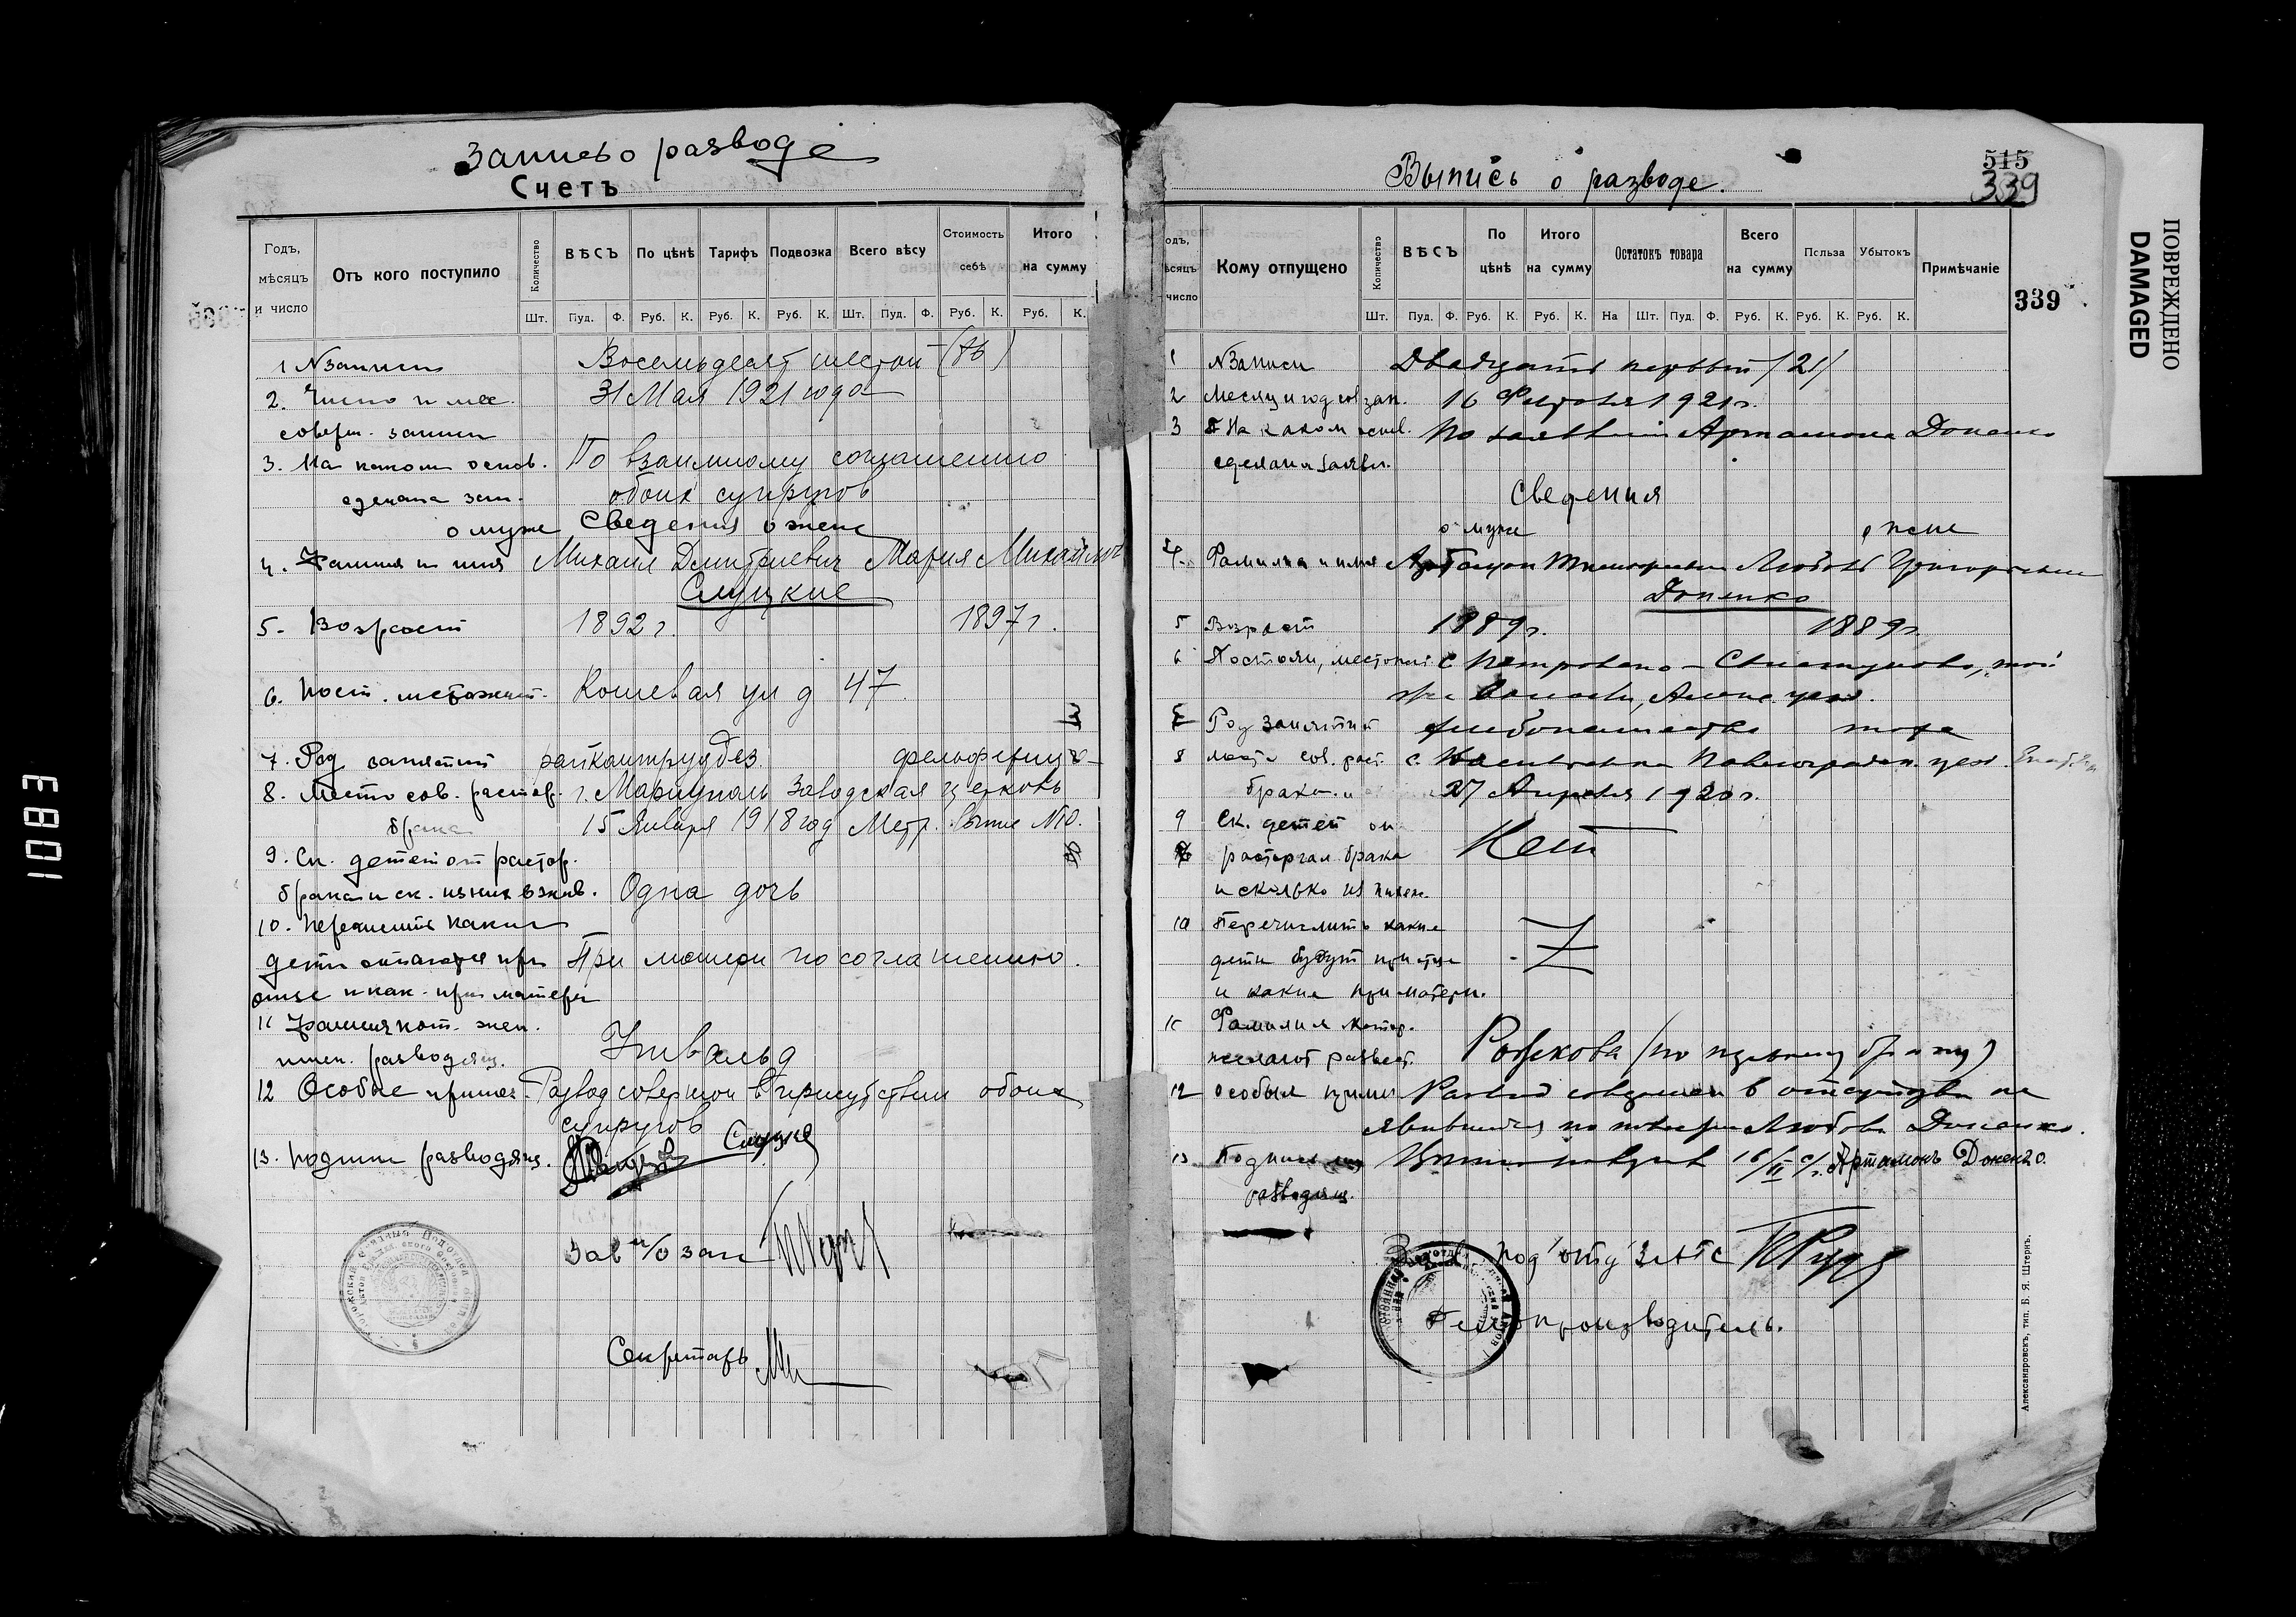 Запись о разводе
Счетъ
Годъ, мѣсяцъ и число
Отъ кого поступило
Количество
ВѢСЪ
По цѣнѣ
Тарифъ
Подвозка
Всего вѣсу
Стоимость себѣ
Итого на сумму
Шт. Пуд. Ф. Руб. К. Руб. К. Руб. К. Шт. Пуд. Ф. Руб. К. Руб. К.
1 N записи Восемьдесят шестой (86)
2. Число и мес. 31 Мая 1921 года
соверш. записи
3. На каком основ. По взаимному соглашению
сделана зап. обоих супругов
о муже Сведения о жене
4. Фамилия и имя Михаил Дмитриевич Мария Михайлов
Слуцкие
5. Возраст 1892 г. 1897 г.
6. Пост. местожит. Кошевая ул д 47
7. Род занятий
8. Место сов. растор. г. Мариуполь Заводская церковь
брака 15 Января 1918 год Метр.
9. Ск. детей от растор.
брака и ск. из них в жив. Одна дочь
10. Перечислить какие
дети остаются при При матери по соглашению.
отце и как. при матери
11 Фамилия кот. жел.
имен. разводящ.
12 Особые примеч. Развод совершон в присутствии обоих
супругов
13. Подписи разводящ. Слуцкая
Зав п/о зап
Секретарь
Выпись о разводе.
515
339
одъ, ѣсяцъ число
Кому отпущено
Количество
ВѢСЪ
По цѣнѣ
Итого на сумму
Остатокъ товара
Всего на сумму
Польза
Убытокъ
Примѣчаніе
339
Шт. Пуд. Ф. Руб. К. Руб. К. На Шт. Пуд. Ф. Руб. К. Руб. К. Руб. К.
1 N Записи Двадцать первый /21/
2 Месяц и год сов зап. 16 Февраля 1921 г.
3 На каком основ. По заявлению Артамона Доненко
сделана заявл.
Сведения
о муже о жене
4. Фамилия и имя Артамон Любовь Григорьевна
Доненко
5 Возраст 1889 г. 1889 г.
6 Постоян. местожит. с Петровско - Свистуново, той
же волости, Алекс. уезд.
Род занятий хлебопашество тоже
8 место сов. раст. с. Павлоградск. уезд
брака 27 Апреля 1920 г.
9 Ск. детей от Нет
расторгал брака
и сколько из них жив.
10 Перечислить какие
дети будут при отце
и какие при матери.
11 Фамилия котор.
желают развест. (по первому браку)
12 Особыя примеч Развод совершон в отсутствии не
явившейся по повестке Любови Доненко.
13 Подписи лиц 16/II с/г. Артамонъ Доненко.
разводящ.
Зав под'отд ЗАГС
Делопроизводитель.
Александровскъ, тип. Б. Я. Штернъ.
ПОВРЕЖДЕНО
DAMAGED
108 3